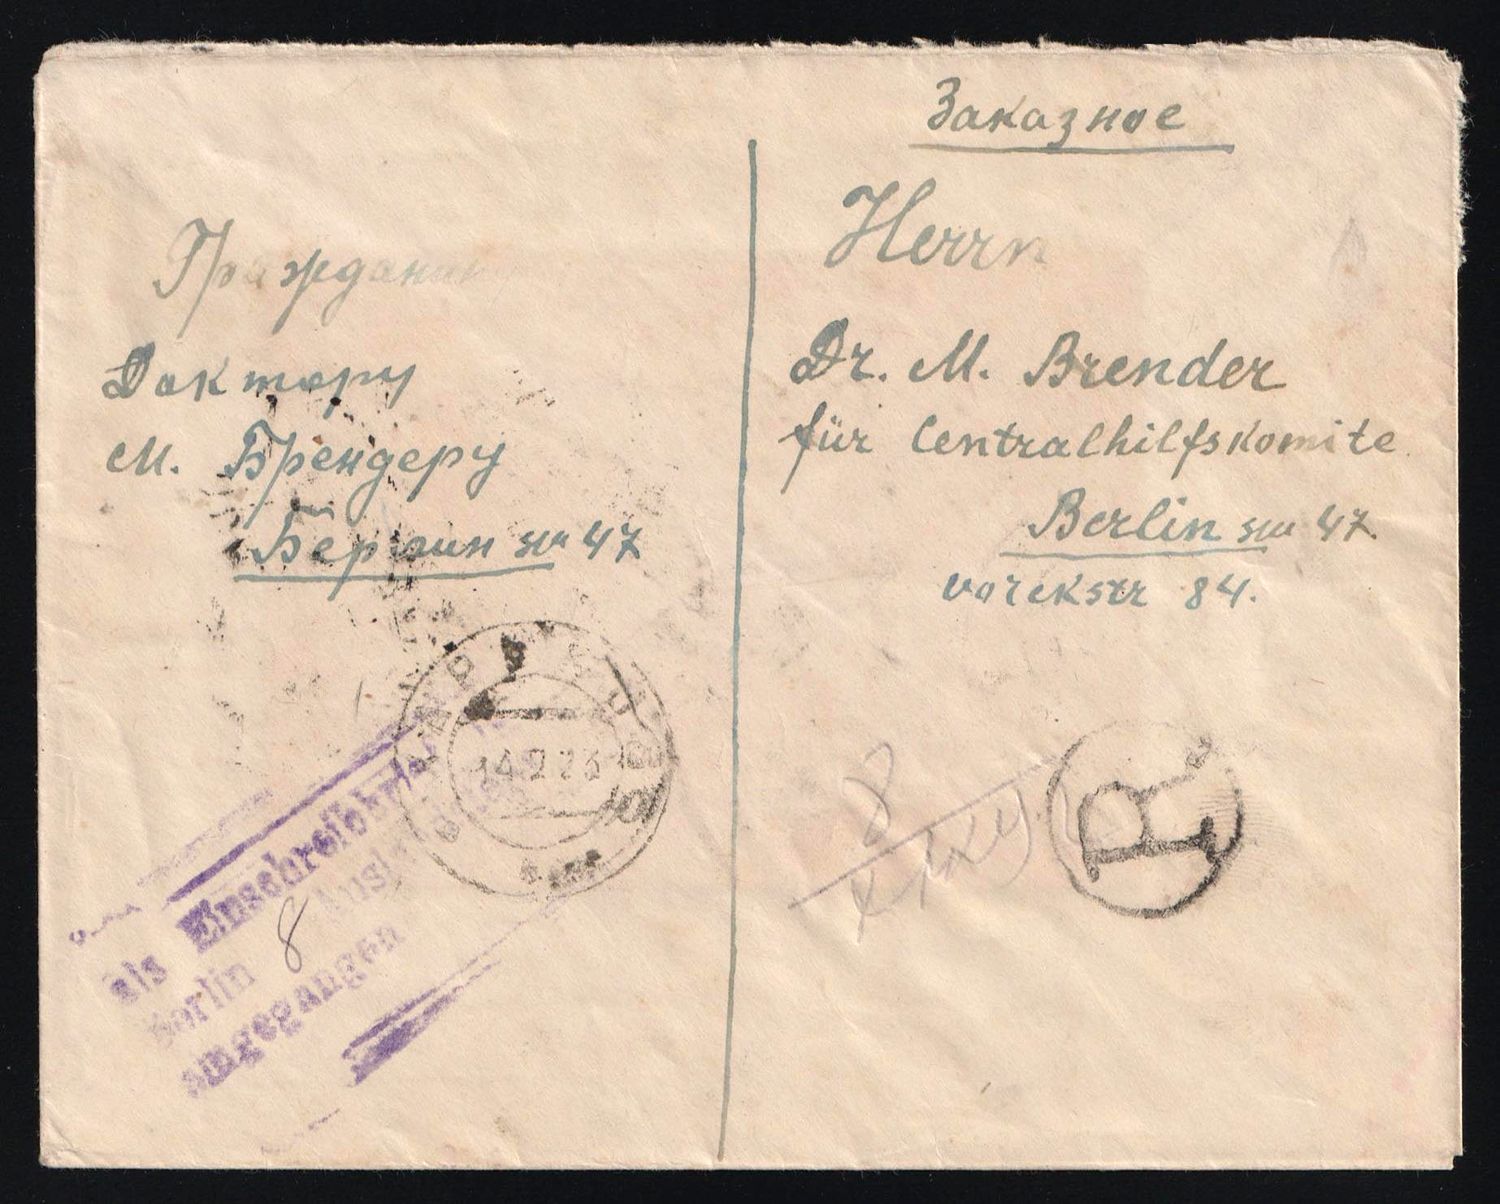 Заказное
Гражданину
Доктору
М. Брендеру
Берлин sw 47
Herrn
Dr. M. Brender
für Centralhilfskomite
Berlin sw 47.
vorckstr 84.
14 2 23
8
R
als Einschreibbrief
Berlin 8 Ausl
eingegangen